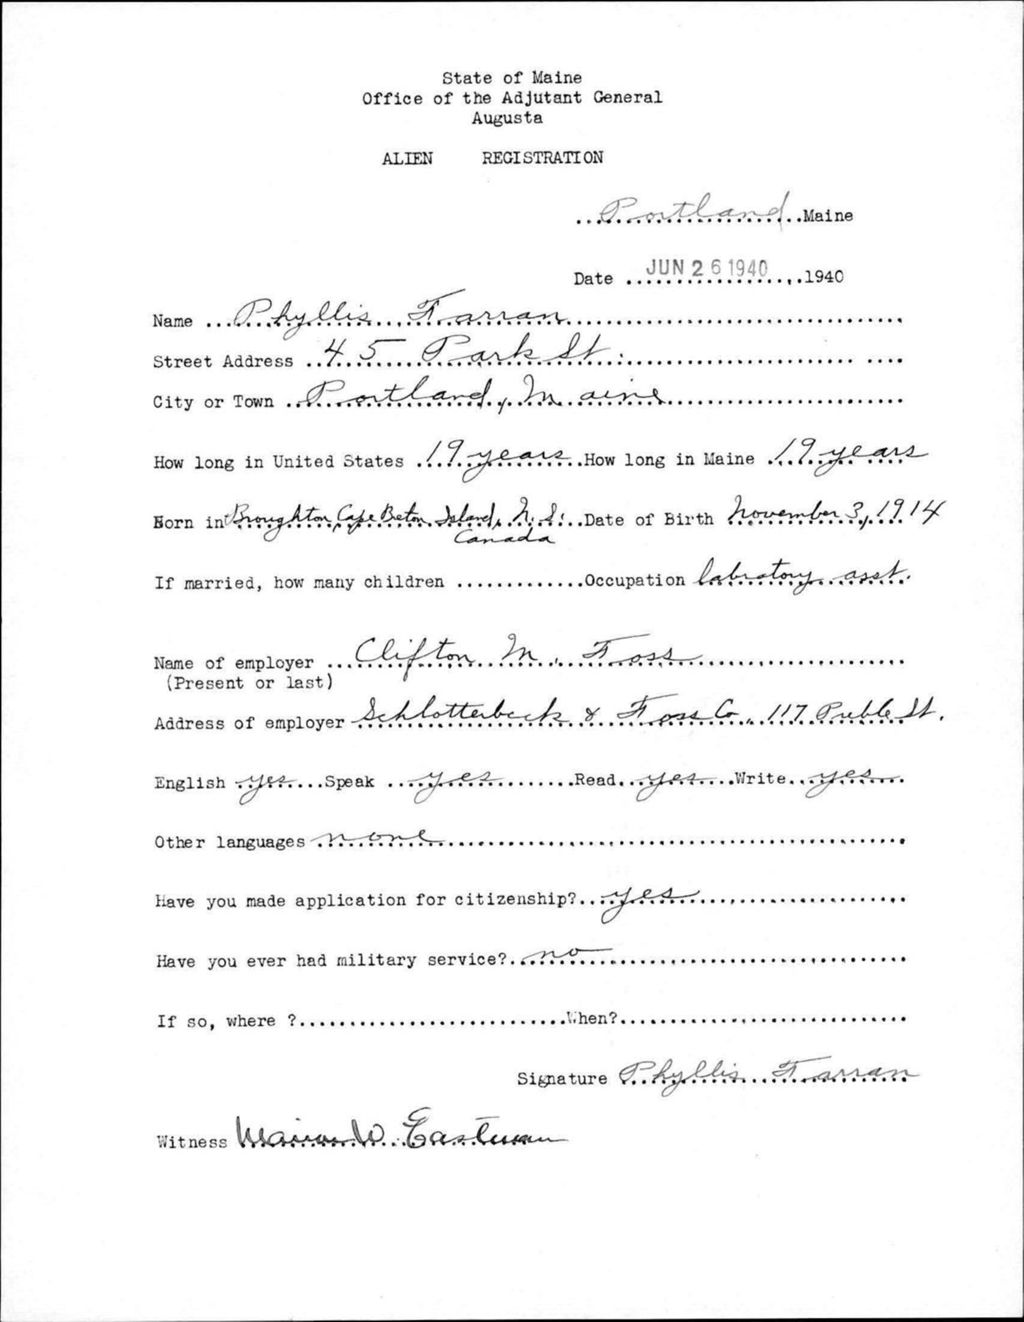 State of Maine
Office of the Adjutant General
Augusta
ALIEN REGISTRATION
Portland Maine
Date JUN 26 1940 1940
Name Phyllis Farran
Street Address 45 Park St.
City or Town Portland, Maine
How long in United States 19 years How long in Maine 19 years
Born in Broughton, Cape Breton Island, N.S. Date of Birth November 3, 1914
Canada
If married, how many children Occupation labratory asst.
Name of employer Clifton M. Foss
(Present or last)
Address of employer Schlotterbeck & Foss Co., 117 Preble St.
English yes Speak yes Read yes Write yes
Other languages none
Have you made application for citizenship? yes
Have you ever had military service? no
If so, where ? When?
Signature Phyllis Farran
Witness Marion W. Eastman